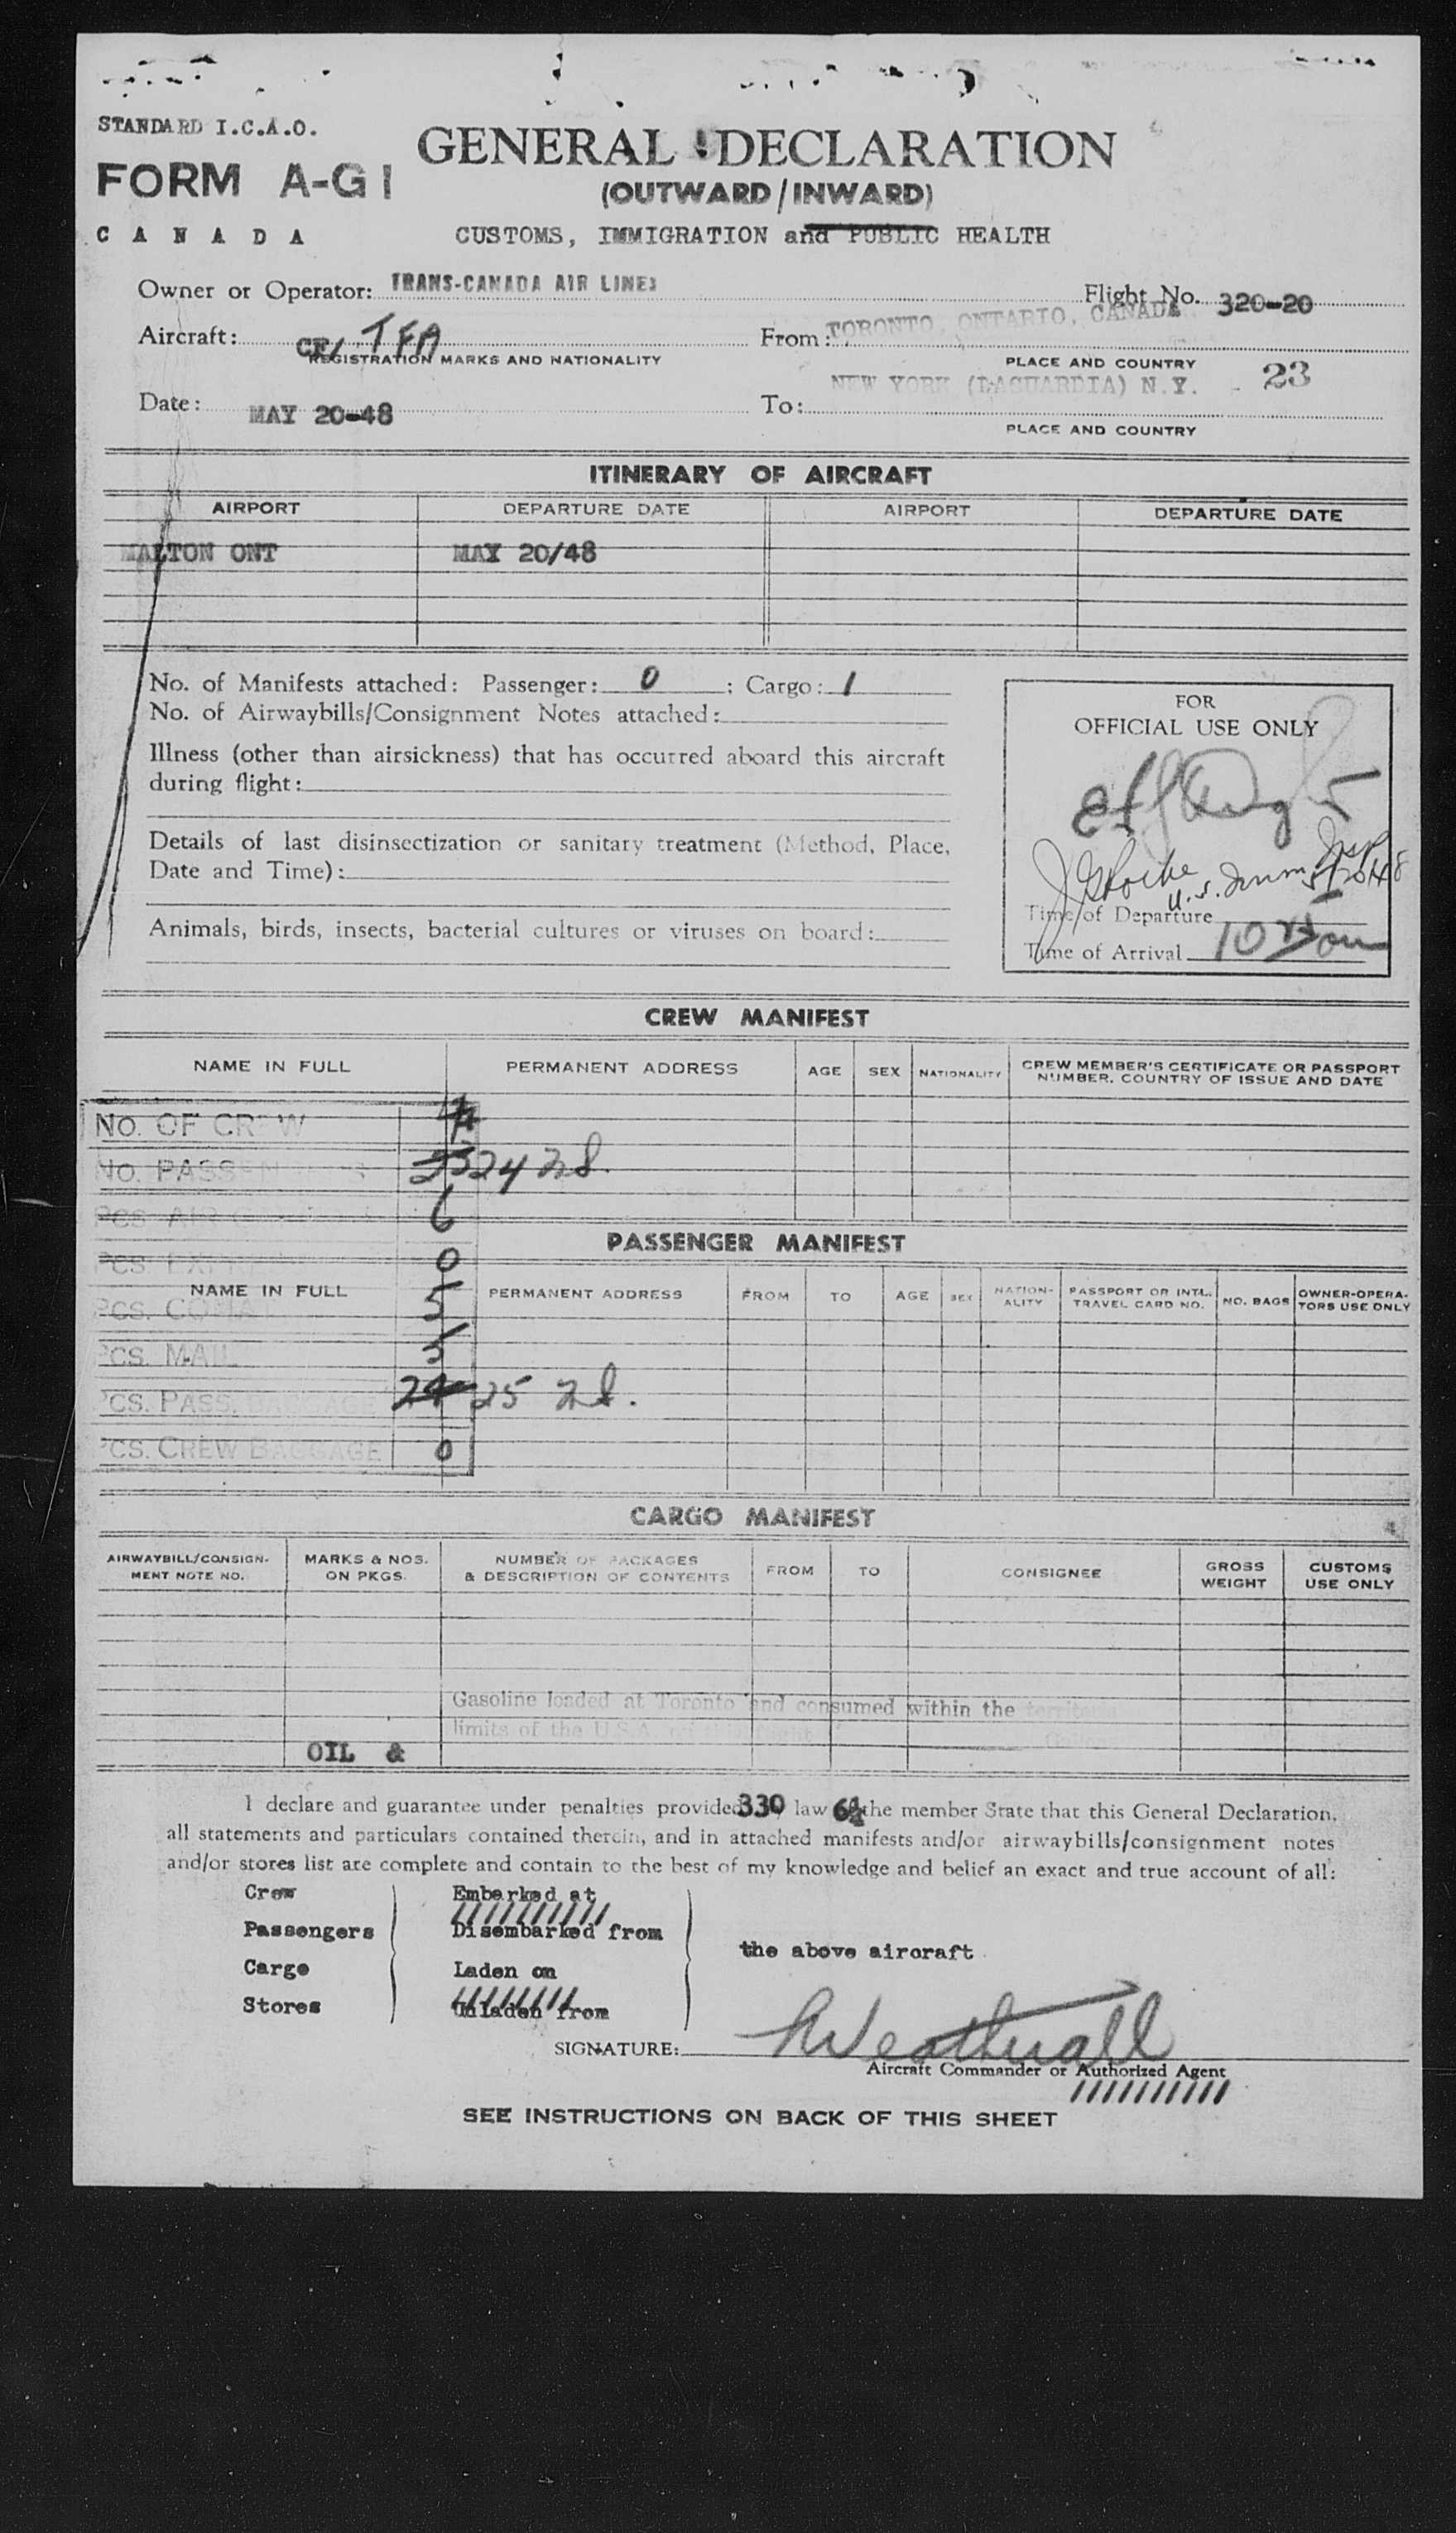 STANDARD I.C.A.O.
FORM A-G1
GENERAL DECLARATION
(OUTWARD/INWARD)
CANADA
CUSTOMS, IMMIGRATION and PUBLIC HEALTH
Owner or Operator: TRANS-CANADA AIR LINES
Flight No. 320-20
Aircraft: CF/ TFA
From: TORONTO, ONTARIO, CANADA
REGISTRATION MARKS AND NATIONALITY
PLACE AND COUNTRY
Date: MAY 20-48
To: NEW YORK (LAGUARDIA) N.Y. - 23
PLACE AND COUNTRY
ITINERARY OF AIRCRAFT
AIRPORT DEPARTURE DATE AIRPORT DEPARTURE DATE
MALTON ONT MAY 20/48
No. of Manifests attached: Passenger: 0 ; Cargo: 1
No. of Airwaybills/Consignment Notes attached:
Illness (other than airsickness) that has occurred aboard this aircraft
during flight:
Details of last disinsectization or sanitary treatment (Method, Place,
Date and Time):
Animals, birds, insects, bacterial cultures or viruses on board:
FOR
OFFICIAL USE ONLY
U.S. Imm Insp
5/20/48
Time of Departure
Time of Arrival 10
CREW MANIFEST
NAME IN FULL PERMANENT ADDRESS AGE SEX NATIONALITY CREW MEMBER'S CERTIFICATE OR PASSPORT
NUMBER, COUNTRY OF ISSUE AND DATE
No. OF CREW
No. PASSENGERS 24 28.
PCS. 6
PASSENGER MANIFEST
PCS. 0
NAME IN FULL PERMANENT ADDRESS FROM TO AGE SEX NATION-
ALITY PASSPORT OR INTL.
TRAVEL CARD NO. NO. BAGS OWNER-OPERA-
TORS USE ONLY
PCS. 5
PCS. MAIL 5
PCS. PASS. BAGGAGE 24 25
PCS. CREW BAGGAGE 0
CARGO MANIFEST
AIRWAYBILL/CONSIGN-
MENT NOTE NO. MARKS & NOS.
ON PKGS. NUMBER OF PACKAGES
& DESCRIPTION OF CONTENTS FROM TO CONSIGNEE GROSS
WEIGHT CUSTOMS
USE ONLY
Gasoline loaded at Toronto and consumed within the territorial
limits of the U.S.A. on this flight
OIL &
I declare and guarantee under penalties provided 330 law 6½ the member State that this General Declaration,
all statements and particulars contained therein, and in attached manifests and/or airwaybills/consignment notes
and/or stores list are complete and contain to the best of my knowledge and belief an exact and true account of all:
Crew Embarked at
Passengers Disembarked from
the above aircraft
Cargo Laden on
Stores Unladen from
SIGNATURE: Weatherall
Aircraft Commander or Authorized Agent
SEE INSTRUCTIONS ON BACK OF THIS SHEET